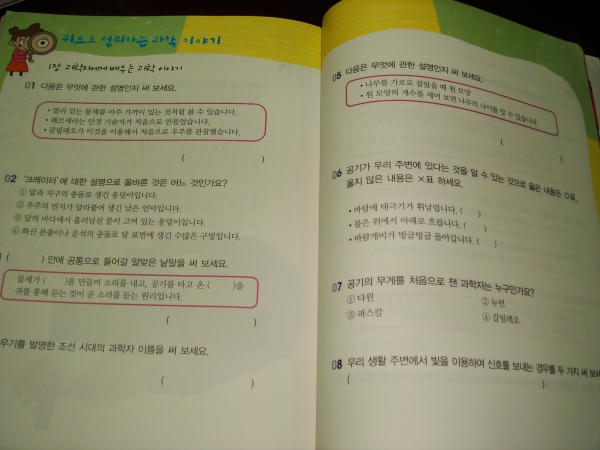 퀴즈로 정리하는 과학 이야기
1장 과학자에게 배우는 과학 이야기
01 다음은 무엇에 관한 설명인지 써 보세요.
• 멀리 있는 물체를 아주 가까이 있는 것처럼 볼 수 있습니다.
• 리프세라는 안경 기술자가 처음으로 만들었습니다.
• 갈릴레오가 이것을 이용해서 처음으로 우주를 관찰했습니다.
( )
02 '크레이터'에 대한 설명으로 올바른 것은 어느 것인가요?
① 달과 지구의 충돌로 생긴 웅덩이입니다.
② 우주의 먼지가 달라붙어 생긴 낮은 언덕입니다.
③ 달의 바다에서 흘러넘친 물이 고여 있는 웅덩이입니다.
④ 화산 분출이나 운석의 충돌로 달 표면에 생긴 수많은 구멍입니다.
( ) 안에 공통으로 들어갈 알맞은 낱말을 써 보세요.
물체가 ( )을 만들어 소리를 내고, 공기를 타고 온 ( )을
귀를 통해 듣는 것이 곧 소리를 듣는 원리입니다.
( )
우기를 발명한 조선 시대의 과학자 이름을 써 보세요.
( )
05 다음은 무엇에 관한 설명인지 써 보세요.
• 나무를 가로로 잘랐을 때 원 모양
• 원 모양의 개수를 세어 보면 나무의 나이를 알 수 있습니다.
( )
06 공기가 우리 주변에 있다는 것을 알 수 있는 것으로 옳은 내용은 ○표,
옳지 않은 내용은 ×표 하세요.
• 바람에 태극기가 휘날립니다. ( )
• 물은 위에서 아래로 흐릅니다. ( )
• 바람개비가 빙글빙글 돌아갑니다. ( )
07 공기의 무게를 처음으로 잰 과학자는 누구인가요?
① 다윈 ② 뉴턴
③ 파스칼 ④ 갈릴레오
08 우리 생활 주변에서 빛을 이용하여 신호를 보내는 경우를 두 가지 써 보세
( )